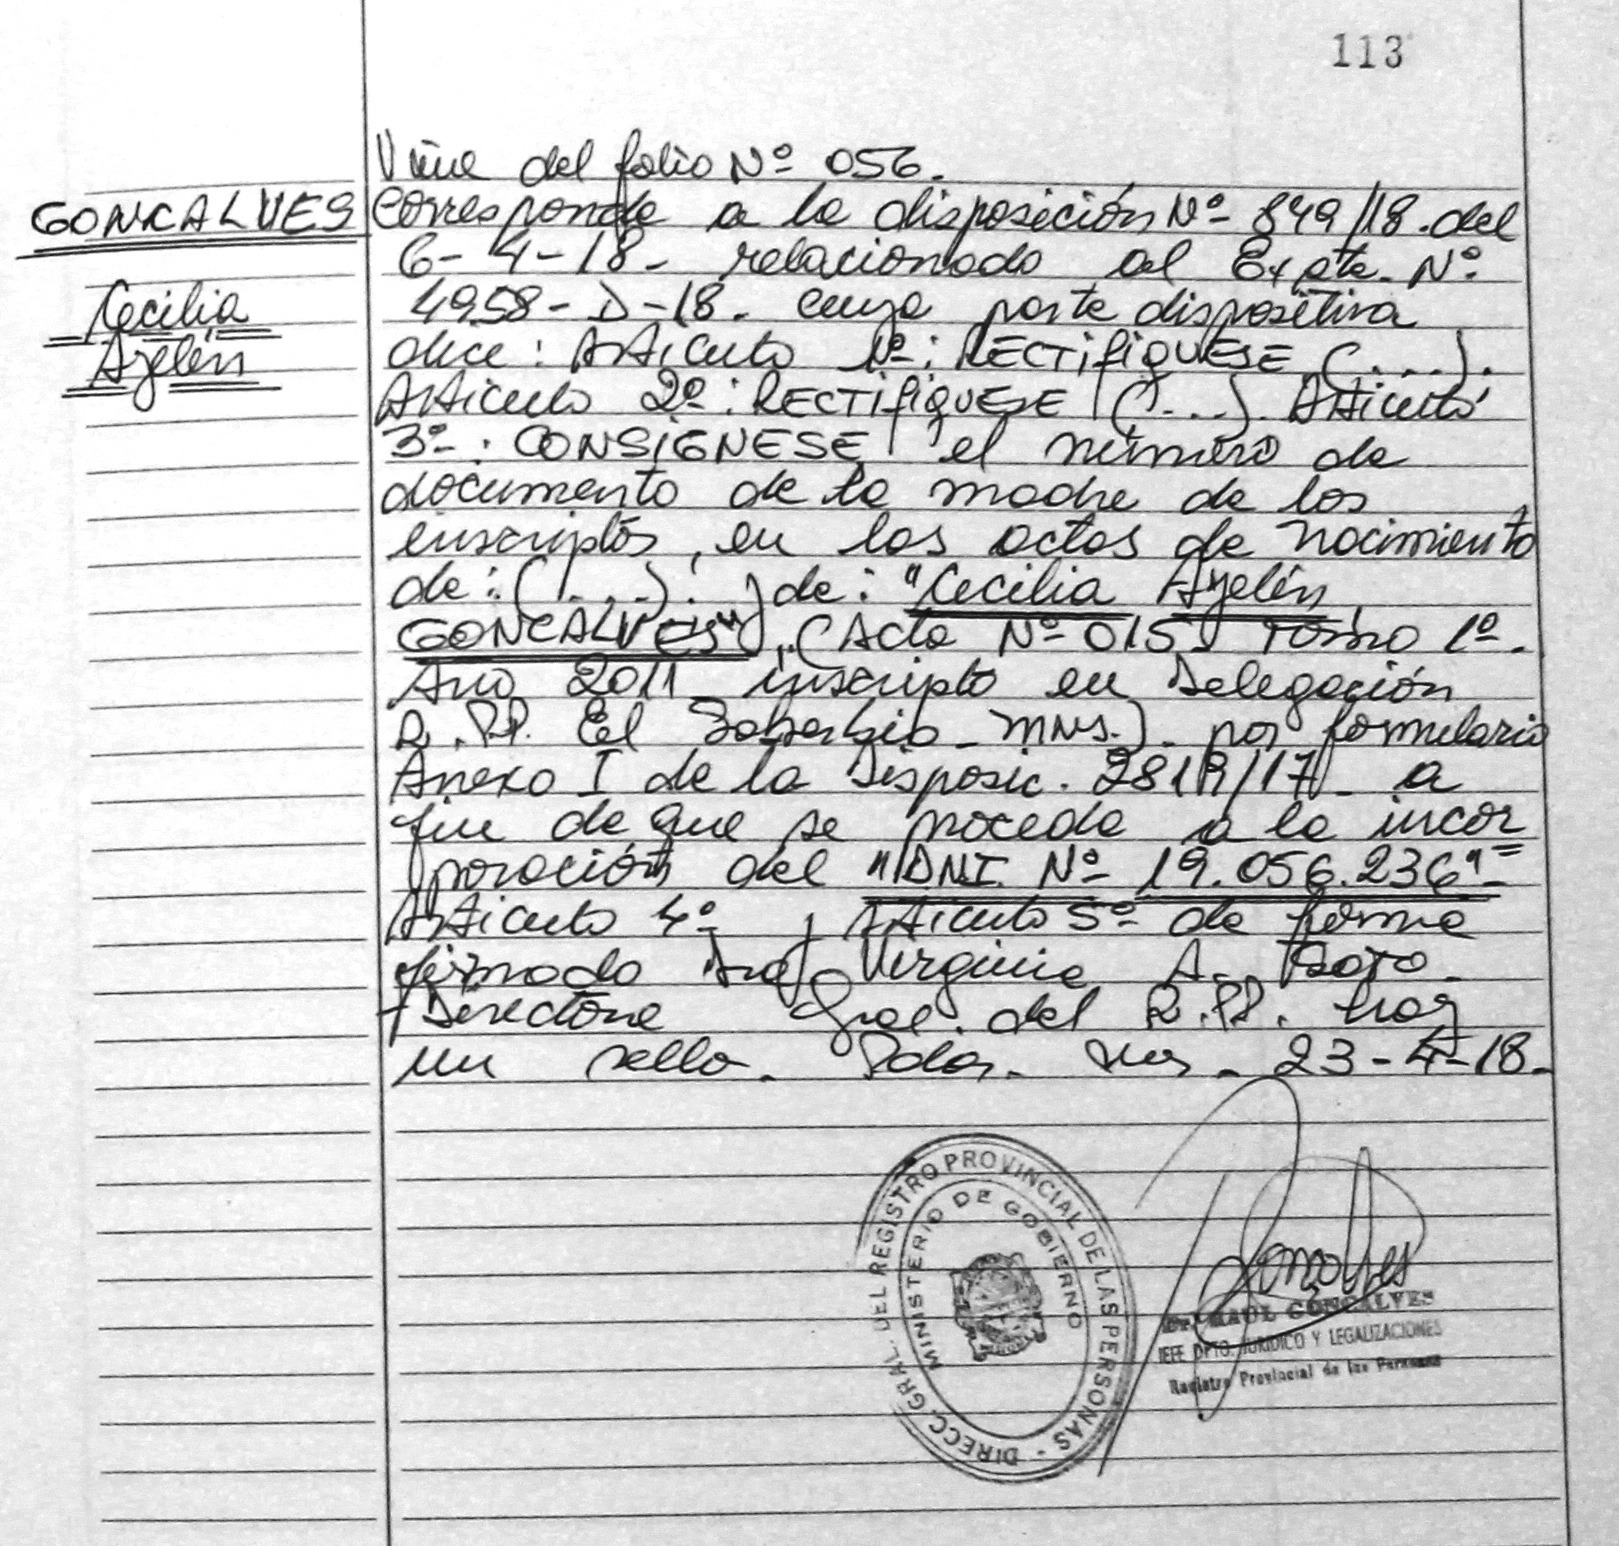 113
Viene del folio Nº 056.
GONCALVES
Cecilia
Ayelén
Corresponde a la disposición Nº 849/18. del
6-4-18- relacionado al Expte. Nº
4958-D-18. cuya parte dispositiva
dice: Articulo 1º: RECTIFIQUESE (....).
Articulo 2º: RECTIFIQUESE (....). Articulo
3º: CONSIGNESE el número de
documento de la madre de los
inscriptos, en las actas de nacimiento
de: (....). de: "Cecilia Ayelén
GONCALVES" (Acta Nº 015 Tomo 1º.
Año 2011 inscripto en Delegación
R.PP. El Soberbio - Mns.). por formulario
Anexo I de la Disposic. 2819/17 - a
fin de que se proceda a la incor
poración del "DNI. Nº 19.056.236"=
Articulo 4º y Articulo 5º de forma
firmado Dra. Virginia A.
Directora Gral. del R.PP. hay
un sello. Pdas. Mns. 23-4-18-
DIRECC. GRAL. DEL REGISTRO PROVINCIAL DE LAS PERSONAS -
MINISTERIO DE GOBIERNO
Dr. RAUL GONCALVES
JEFE DPTO. JURIDICO Y LEGALIZACIONES
Registro Provincial de las Personas